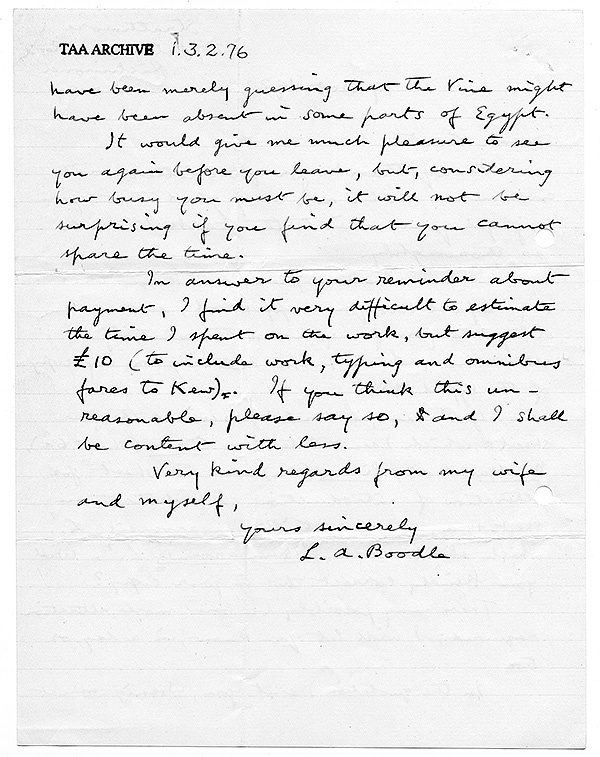 TAA ARCHIVE i.3.2.76
have been merely guessing that the Vine might
have been absent in some parts of Egypt.
It would give me much pleasure to see
you again before you leave, but, considering
how busy you must be, it will not be
surprising if you find that you cannot
spare the time.
In answer to your reminder about
payment, I find it very difficult to estimate
the time I spent on the work, but suggest
£10 (to include work, typing and omnibus
fares to Kew). If you think this un-
reasonable, please say so, and I shall
be content with less.
Very kind regards from my wife
and myself,
yours sincerely
L. A. Boodle